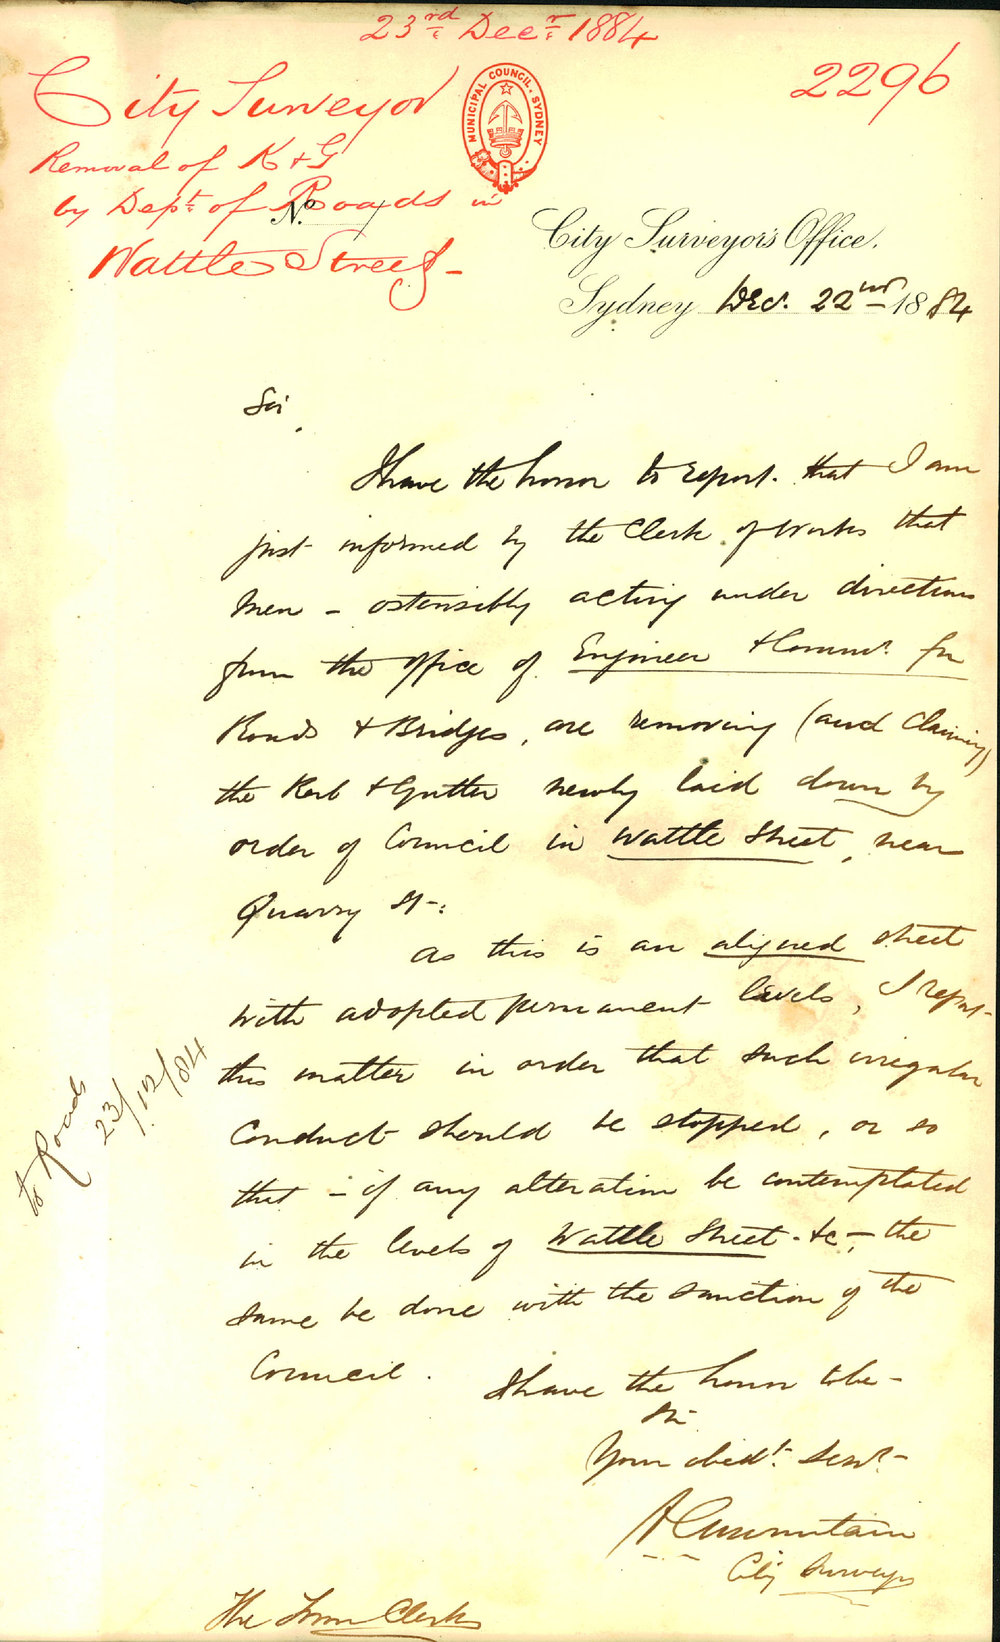 23rd Decr 1884
2296
City Surveyor
Removal of K & G
by Dept of Roads in
Wattle Street
MUNICIPAL COUNCIL. SYDNEY
No.
City Surveyor's Office.
Sydney Dec. 22nd 1884
Sir,
I have the honor to report that I am
just informed by the Clerk of Works that
men - ostensibly acting under directions
from the office of Engineer & Commr. for
Roads & Bridges, are removing (and claiming)
the Kerb & Gutter newly laid down by
order of Council in Wattle Street, near
Quarry St:
As this is an aligned street
with adopted permanent levels, I report
this matter in order that such irregular
conduct should be stopped, or so
that - if any alteration be contemplated
in the levels of Wattle Street &c -, the
same be done with the sanction of the
Council.
I have the honor to be -
Sir
Your obedt. Servt.
City Surveyor
The Town Clerk
to Roads
23/12/84